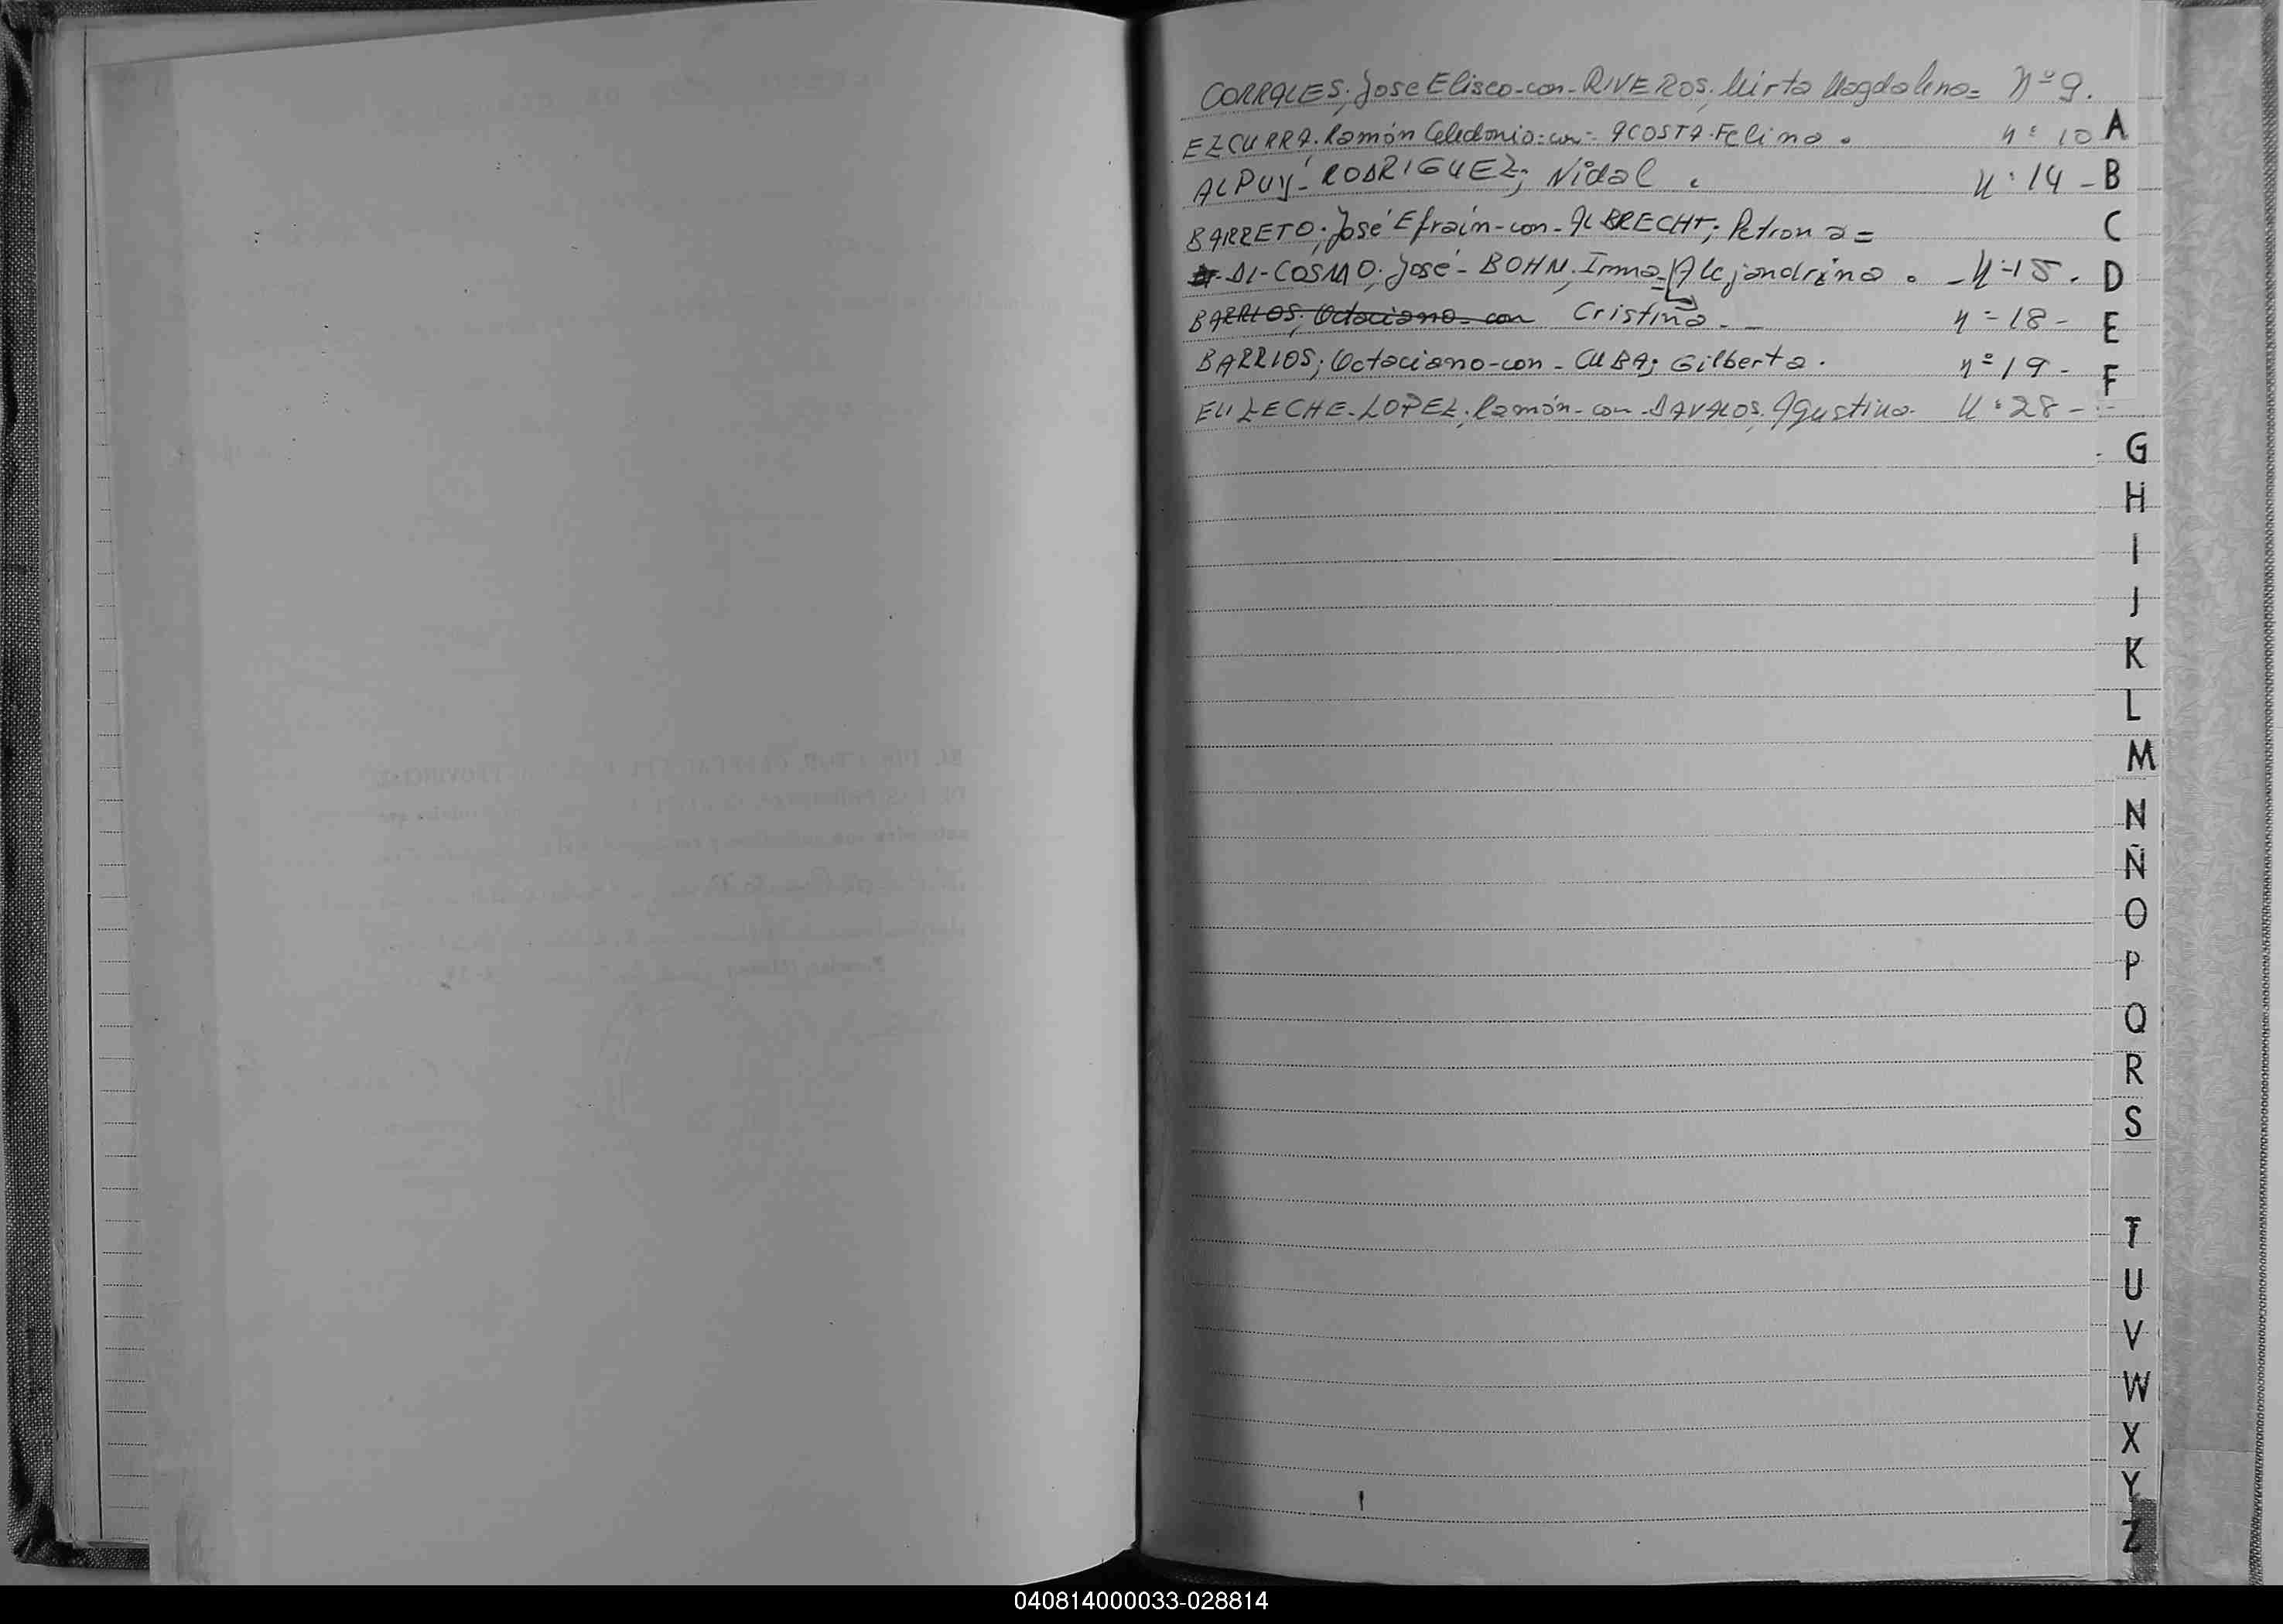 CORRALES, Jose Eliseo-con-RIVEROS, Mirta Magdalena= Nº 9.
EZCURRA, Ramón Celedonio-con- ACOSTA. Felina. nº 10
ALPUY-RODRIGUEZ; Nidal. Nº 14 -
BARRETO; José Efraín-con-ALBRECHT; Petrona=
DI-COSMO; José - BOHN, Irma-Alejandrina. - Nº 15.
BARRIOS; Octaciano - con Cristina. - nº 18 -
BARRIOS; Octaciano-con - CUBA; Gilberta. nº 19 -
LOPEZ; Ramón-con-DAVALOS, Agustina. Nº 28 -
A
B
C
D
E
F
G
H
I
J
K
L
M
N
Ñ
O
P
Q
R
S
T
U
V
W
X
Y
Z
040814000033-028814